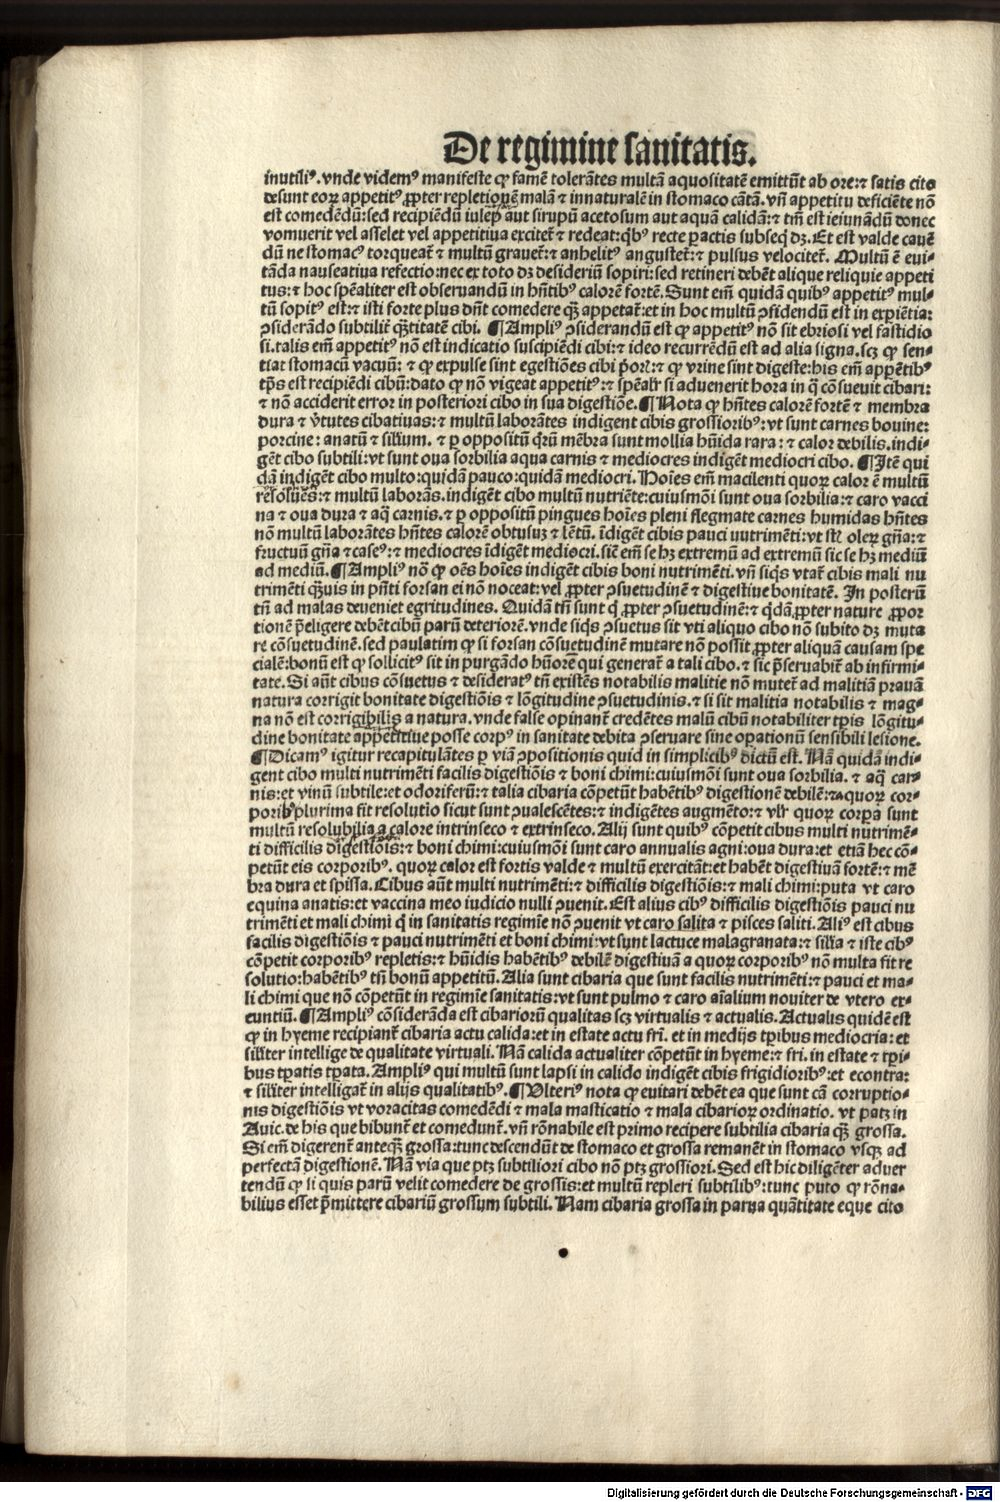 De regimine sanitatis.
inutiliꝰ. vnde videmꝰ manifeste ꝙ famē tolerātes multā aquositatē emittūt ab ore: ⁊ satis cito
desunt eoꝝ appetitꝰ ꝓpter repletionē malā ⁊ innaturalē in stomaco cātā. vn̄ appetitu deficiēte nō
est comedēdū: sed recipiēdū iulep aut sirupū acetosum aut aquā calidā: ⁊ tm̄ est ieiunādū donec
vomuerit vel asselet vel appetitiua excitet̄ ⁊ redeat: qͥbꝰ recte ꝑactis subseqͥ dꝫ. Et est valde cauē
dū ne stomacꝰ torqueat̄ ⁊ multū grauet̄: ⁊ anhelitꝰ angustet̄: ⁊ pulsus velocitet̄. Multū ē eui⸗
tāda nauseatiua refectio: nec ex toto dꝫ desideriū sopiri: sed retineri debēt alique reliquie appeti
tus: ⁊ hoc spēaliter est obseruandū in hn̄tibꝰ calorē fortē. Sunt em̄ quidā quibꝰ appetitꝰ mul⸗
tū sopitꝰ est: ⁊ isti forte plus dn̄t comedere qͣꝫ appetāt: et in hoc multū ꝯsidendū est in expiētia:
ꝯsiderādo subtilit̄ qͣꝫtitatē cibi. ¶ Ampliꝰ ꝯsiderandū est ꝙ appetitꝰ nō sit ebriosi vel fastidio
si. talis em̄ appetitꝰ nō est indicatio suscipiēdi cibi: ⁊ ideo recurrēdū est ad alia signa. scꝫ ꝙ sen⸗
tiat stomacū vacuū: ⁊ ꝙ expulse sint egestiōes cibi p̄orꝭ: ⁊ ꝙ vrine sint digeste: his em̄ apparētibꝰ
tp̄s est recipiēdi cibū: dato ꝙ nō vigeat appetitꝰ: ⁊ spēalr̄ si aduenerit hora in qͣ cōsueuit cibari:
⁊ nō acciderit error in posteriori cibo in sua digestiōe. ¶ Nota ꝙ hn̄tes calorē fortē ⁊ membra
dura ⁊ v̄tutes cibatiuas: ⁊ multū laborātes indigent cibis grossioribꝰ: vt sunt carnes bouine:
porcine: anatū ⁊ siliūm. ⁊ ꝑ oppositū qͦrū mēbra sunt mollia hūida rara: ⁊ calor debilis. indi⸗
gēt cibo subtili: vt sunt oua sorbilia aqua carnis ⁊ mediocres indigēt mediocri cibo. ¶ Itē qui
dā indigēt cibo multo: quidā pauco: quidā mediocri. Hoīes em̄ macilenti quoꝝ calor ē multū
resoluēs: ⁊ multū laborās. indigēt cibo multū nutriēte: cuiusmōi sunt oua sorbilia: ⁊ caro vacci
na ⁊ oua dura ⁊ aqͣ carnis. ⁊ ꝑ oppositū pingues hoīes pleni flegmate carnes humidas hn̄tes
nō multū laborātes hn̄tes calorē obtusuꝫ ⁊ lētū. īdigēt cibis pauci nutrimēti: vt sꝉ oleꝝ gn̄a: ⁊
fructuū gn̄a ⁊ caseꝰ: ⁊ mediocres īdigēt mediocri. sic̄ em̄ se hꝫ extremū ad extremū sic se hꝫ mediū
ad mediū. ¶ Ampliꝰ nō ꝙ oēs hoīes indigēt cibis boni nutrimēti. vn̄ siqͥs vtat̄ cibis mali nu
trimēti qͣꝫuis in pn̄ti forsan ei nō noceat: vel ꝓpter ꝯsuetudinē ⁊ digestiue bonitatē. In posterū
tn̄ ad malas deueniet egritudines. Quidā tn̄ sunt qͥ ꝓpter ꝯsuetudinē: ⁊ qͥdā ꝓpter nature ꝓpor
tionē p̄eligere debēt cibū parū deteriorē. vnde siqͥs ꝯsuetus sit vti aliquo cibo nō subito dꝫ muta
re cōsuetudinē. sed paulatim ꝙ si forsan cōsuetudinē mutare nō possit ꝓpter aliquā causam spe
cialē: bonū est ꝙ sollicitꝰ sit in purgādo hūorē qui generat̄ a tali cibo. ⁊ sic p̄seruabit̄ ab infirmi⸗
tate. Si aūt cibus cōsuetus ⁊ desideratꝰ tn̄ existēs notabilis malitie nō mutet̄ ad malitiā prauā
natura corrigit bonitate digestiōis ⁊ lōgitudine ꝯsuetudinis. ⁊ si sit malitia notabilis ⁊ mag⸗
na nō est corrigibilis a natura. vnde false opinant̄ credētes malū cibū notabiliter tp̄is lōgitu⸗
dine bonitate appetitiue posse corpꝰ in sanitate debita ꝯseruare sine oꝑationū sensibili lesione.
¶ Dicamꝰ igitur recapitulātes ꝑ viā ꝯpositionis quid in simplicibꝰ dictū est. Nā quidā indi⸗
gent cibo multi nutrimēti facilis digestiōis ⁊ boni chimi: cuiusmōi sunt oua sorbilia. ⁊ aqͣ car⸗
nis: et vinū subtile: et odoriferū: ⁊ talia cibaria cōpetūt habētibꝰ digestionē debilē: ⁊ a quoꝝ cor⸗
poribꝰ plurima fit resolutio sicut sunt ꝯualescētes: ⁊ indigētes augmēto: ⁊ vlr̄ quoꝝ corpora sunt
multū resolubilia a calore intrinseco ⁊ extrinseco. Alij sunt quibꝰ cōpetit cibus multi nutrimē⸗
ti difficilis digestiōis: ⁊ boni chimi: cuiusmōi sunt caro annualis agni: oua dura: et etiā hec cō⸗
petūt eis corporibꝰ. quoꝝ calor est fortis valde ⁊ multū exercitāt: et habēt digestiuā fortē: ⁊ mē
bra dura et spissa. Cibus aūt multi nutrimēti: ⁊ difficilis digestiōis: ⁊ mali chimi: puta vt caro
equina anatis: et vaccina meo iudicio nulli ꝯuenit. Est alius cibꝰ difficilis digestiōis pauci nu
trimēti et mali chimi qͥ in sanitatis regimīe nō ꝯuenit vt caro salita ⁊ pisces saliti. Aliꝰ est cibus
facilis digestiōis ⁊ pauci nutrimēti et boni chimi: vt sunt lactuce malagranata: ⁊ siliīa ⁊ iste cibꝰ
cōpetit corporibꝰ repletis: ⁊ hūidis habētibꝰ debilē digestiuā a quoꝝ corporibꝰ nō multa fit re
solutio: habētibꝰ tn̄ bonū appetitū. Alia sunt cibaria que sunt facilis nutrimēti: ⁊ pauci et ma⸗
li chimi que nō cōpetūt in regimīe sanitatis: vt sunt pulmo ⁊ caro aīalium nouiter de vtero ex⸗
euntiū. ¶ Ampliꝰ cōsiderāda est cibarioꝝ qualitas scꝫ virtualis ⁊ actualis. Actualis quidē est
ꝙ in hyeme recipiant̄ cibaria actu calida: et in estate actu fri. et in medijs tp̄ribus mediocria: et
siłiter intellige de qualitate virtuali. Nā calida actualiter cōpetūt in hyeme: ⁊ fri. in estate ⁊ tp̄ri⸗
bus tp̄atis tp̄ata. Ampliꝰ qui multū sunt lapsi in calido indigēt cibis frigidioribꝰ: et econtra:
⁊ siłiter intelligat̄ in alijs qualitatibꝰ. ¶ Vlteriꝰ nota ꝙ euitari debēt ea que sunt cā corruptio⸗
nis digestiōis vt voracitas comedēdi ⁊ mala masticatio ⁊ mala cibarioꝝ ordinatio. vt patꝫ in
Auic. de his que bibunt̄ et comedunt̄. vn̄ rōnabile est primo recipere subtilia cibaria qͣꝫ grossa.
Si em̄ digerent̄ anteqͣꝫ grossa: tunc descendūt de stomaco et grossa remanēt in stomaco vsqꝫ ad
perfectā digestionē. Nā via que ptꝫ subtiliori cibo nō ptꝫ grossiori. Sed est hic diligēter aduer
tendū ꝙ si quis parū velit comedere de grossis: et multū repleri subtilibꝰ: tunc puto ꝙ rōna⸗
bilius esset p̄mittere cibariū grossum subtili. Nam cibaria grossa in parua quātitate eque cito
Digitalisierung gefördert durch die Deutsche Forschungsgemeinschaft - DFG